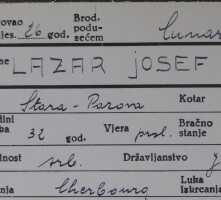 ovao Brod.
jes. 26 god. podu-
zećem Cunar
me LAZAR JOSEF
Stara-Pazova Kotar
dini
ba 32 god. Vjera prot. Bračno
stanje
lnost srb. Državljanstvo J
nja Cherbourg Luka
iskrcanja